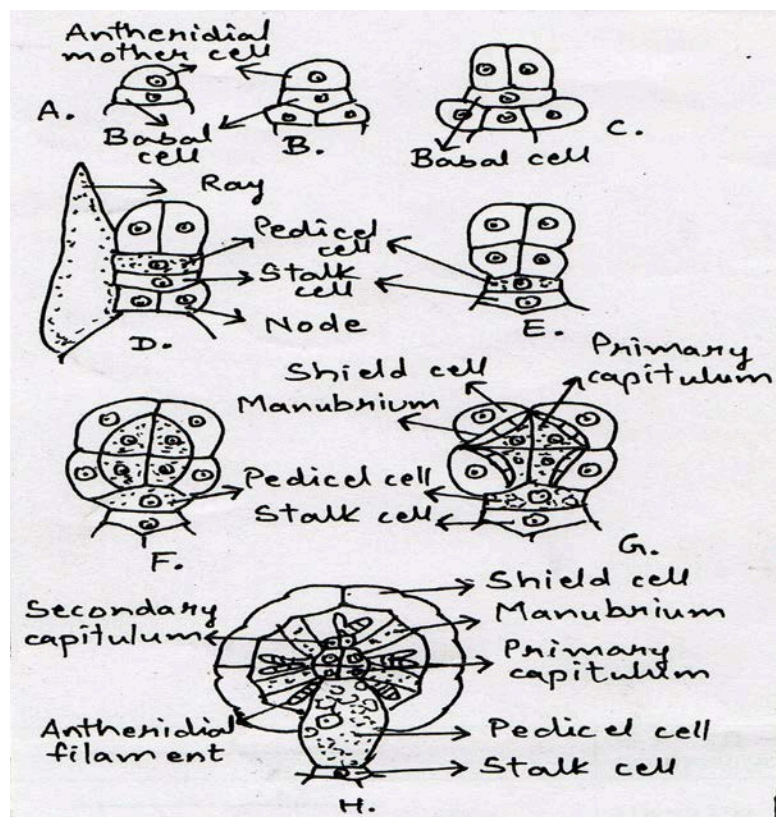 Antheridial
mother cell
A.
Babal
cell
B.
C.
Babal cell
Ray
Pedicel
cell
Stalk
cell
Node
D.
E.
Shield cell
Manubrium
Primary
capitulum
Pedicel cell
Stalk cell
F.
G.
Secondary
capitulum
Shield cell
Manubrium
Primary
capitulum
Antheridial
filament
Pedicel cell
Stalk cell
H.